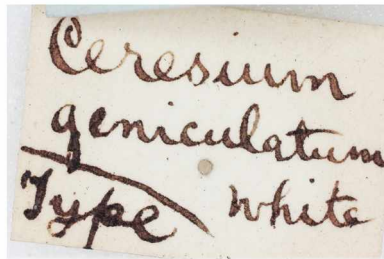 Ceresium
geniculatum
Type White